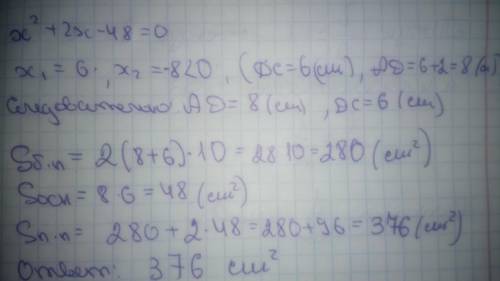 x² + 2x - 48 = 0
x₁ = 6 , x₂ = -8 < 0 , (DC = 6 (cm) , AD = 6+2 = 8 (cm)
Следовательно AD = 8 (cm) , DC = 6 (cm)
Sб.п = 2(8+6)·10 = 28 10 = 280 (cm²)
Sосн = 8·6 = 48 (cm²)
Sп.п = 280 + 2·48 = 280 + 96 = 376 (cm²)
Ответ: 376 cm²